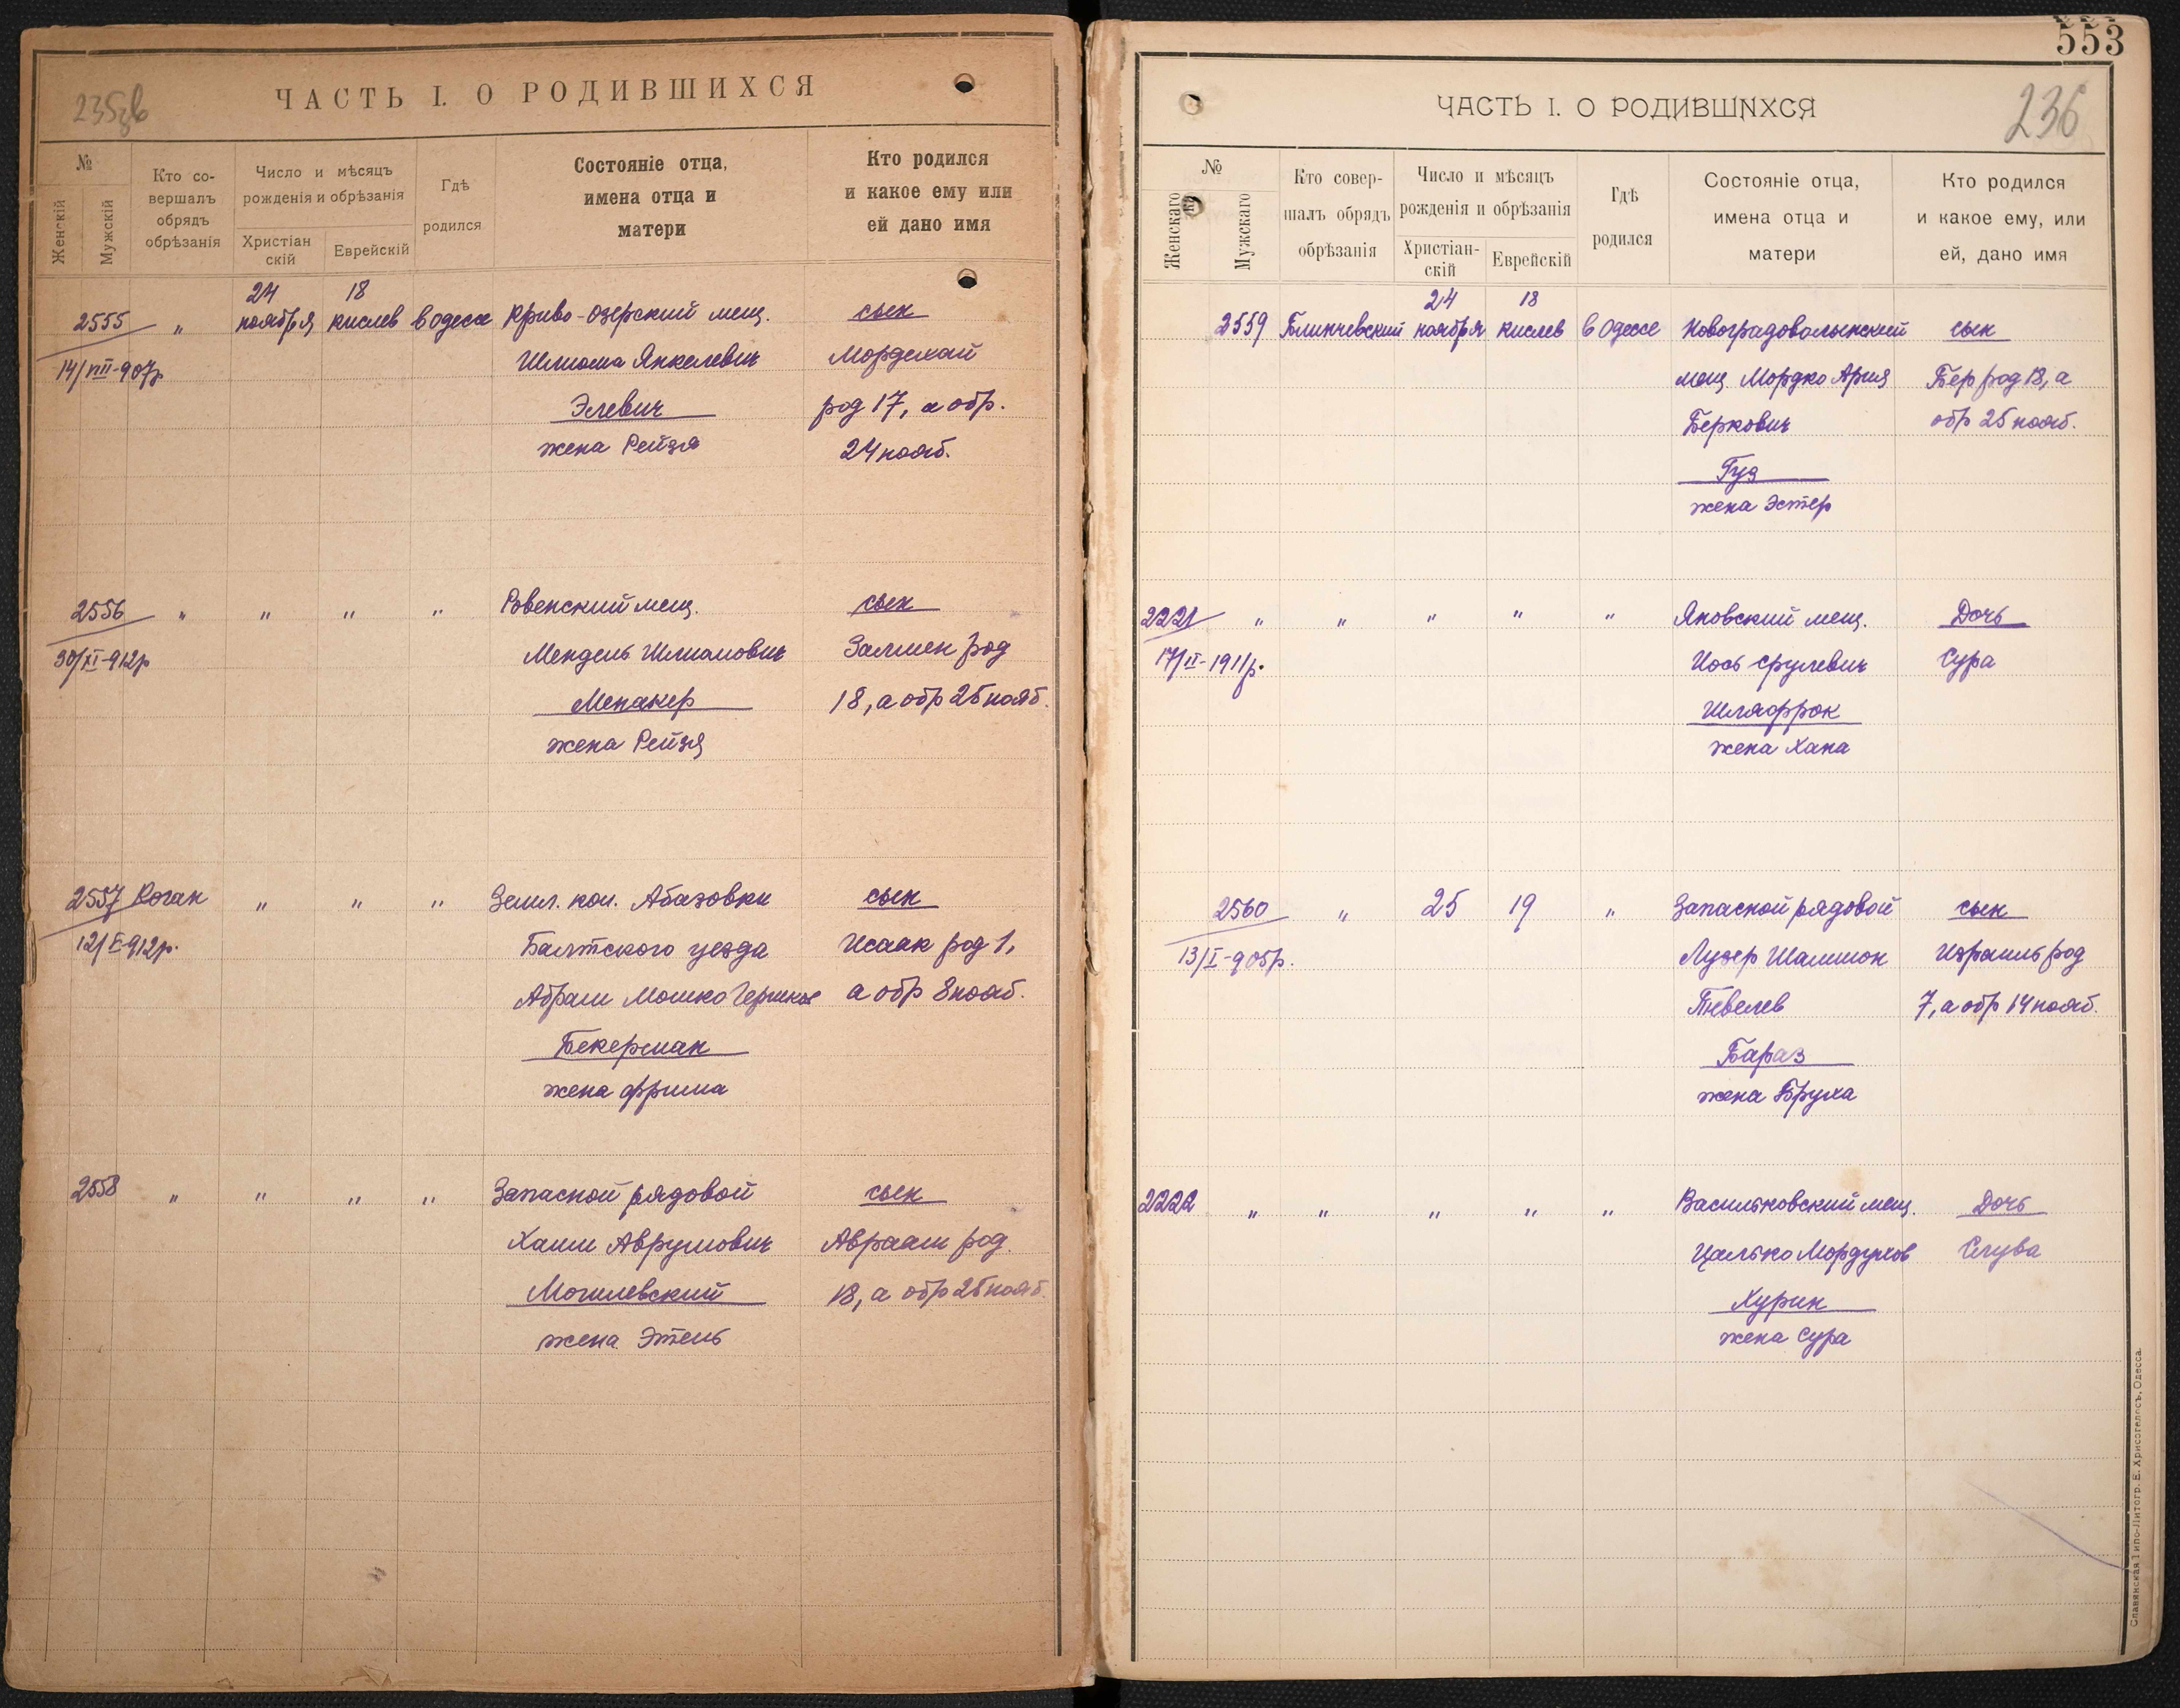 235зв
ЧАСТЬ I. О РОДИВШИХСЯ
№
Женскій
Мужскій
Кто со-
вершалъ
обрядъ
обрѣзанія
Число и мѣсяцъ
рожденія и обрѣзанія
Христіан
скій
Еврейскій
Гдѣ
родился
Состояніе отца,
имена отца и
матери
Кто родился
и какое ему или
ей дано имя
24 18
2555 " ноября кислев в Одессе Криво-Озерский мещ. сын
14/VIII-907г Шлиома Янкелевич Мордехай
Элевич род 17, а обр.
жена Рейзя 24 нояб.
2556 " " " " Ровенский мещ. сын
30/XI-912р Мендель Шлиомович Залмен род
Менакер 18, а обр 25 нояб.
жена Рейзя
2557 Коган " " " Земл. кол. Абазовки сын
12/X-912р. Балтского уезда Исаак род 1,
Абрам Мошко а обр 8 нояб.
Бекерман
жена Фрима
2558 " " " " Запасной рядовой сын
Хаим Аврумович Авраам род.
Могилевский 18, а обр 25 нояб.
жена Этель
553
236
ЧАСТЬ I. О РОДИВШИХСЯ
№
Женскаго
Мужскаго
Кто совер-
шалъ обрядъ
обрѣзанія
Число и мѣсяцъ
рожденія и обрѣзанія
Христіан-
скій
Еврейскій
Гдѣ
родился
Состояніе отца,
имена отца и
матери
Кто родился
и какое ему, или
ей, дано имя
24 18
2559 Блинчевский ноября кислев в Одессе Новоградоволынский сын
мещ. Мордко Ария Бер род 18, а
Беркович обр 25 нояб.
Гуз
жена Эстер
2221 " " " " " Яновский мещ. Дочь
17/II-1911р. Иось Срулевич Сура
Шлафрок
жена Хана
2560 " 25 19 " Запасной рядовой сын
13/I-905р. Лузер Шлимон Израиль род
7, а обр 14 нояб.
Бараз
жена Бруха
2222 " " " " " Васильковский мещ. Дочь
Цалько Мордухов Слува
Хурин
жена Сура
Славянская Типо-Литогр. Е. Хрисогелосъ, Одесса.